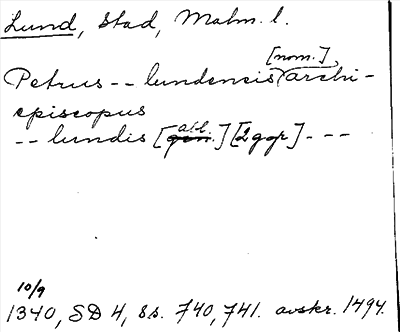 Lund, Stad, Malm. l.
[nom.]
Petrus -- lundencis archi-
episcopus
abl.
-- lundis [gen.] [2 ggr] ---
10/9
1340, SD 4, ss. 740, 741. avskr. 1494.